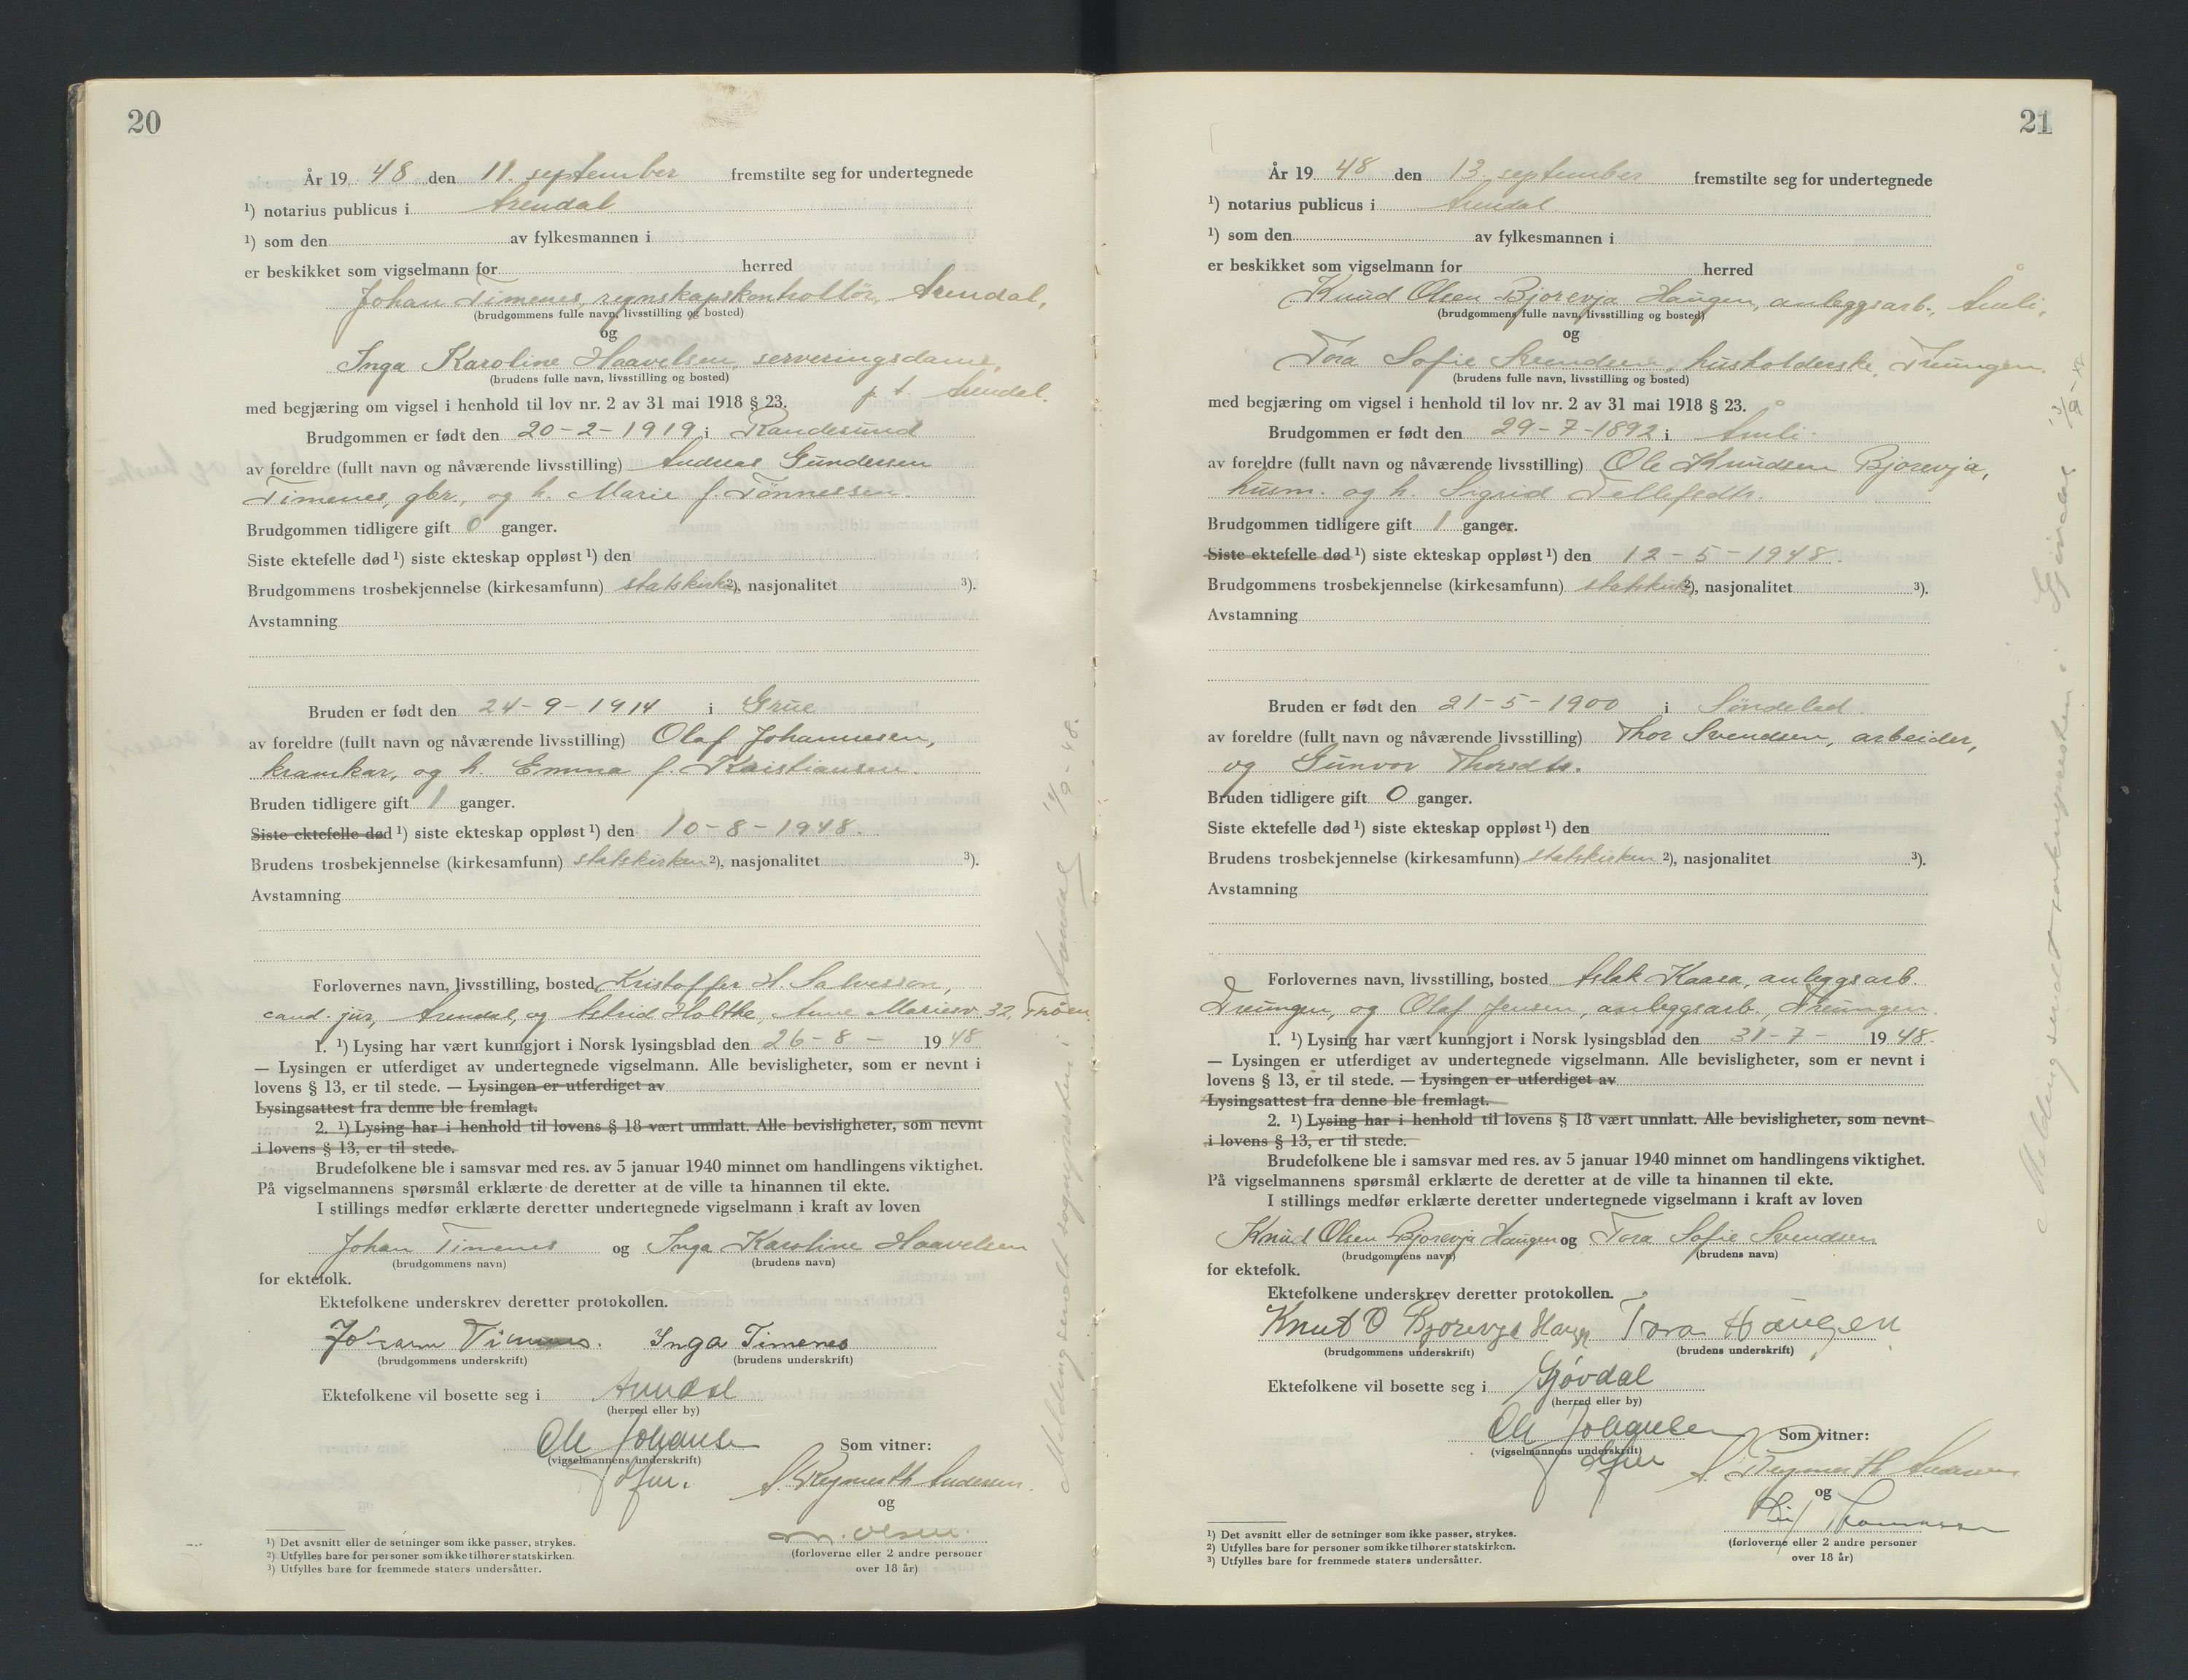 20
År 19 48 den 11. september fremstilte seg for undertegnede
¹) notarius publicus i Arendal
¹) som den av fylkesmannen i
er beskikket som vigselmann for herred
Johan Timenes, regnskapskontrollør, Arendal,
(brudgommens fulle navn, livsstilling og bosted)
og
Inga Karoline Haavelsen, serveringsdame,
(brudens fulle navn, livsstilling og bosted)
p. t. Arendal.
med begjæring om vigsel i henhold til lov nr. 2 av 31 mai 1918 § 23.
Brudgommen er født den 20-2-1919 i Randesund
av foreldre (fullt navn og nåværende livsstilling) Andreas Gundersen
Timenes, gbr., og h. Marie f. Tønnessen.
Brudgommen tidligere gift 0 ganger.
Siste ektefelle død ¹) siste ekteskap oppløst ¹) den
Brudgommens trosbekjennelse (kirkesamfunn) statskirk ²), nasjonalitet ³).
Avstamning
Bruden er født den 24-9-1914 i Grue
av foreldre (fullt navn og nåværende livsstilling) Olaf Johannesen,
kramkar, og h. Emma f. Kristiansen.
Bruden tidligere gift 1 ganger.
Siste ektefelle død ¹) siste ekteskap oppløst ¹) den 10-8-1948.
Brudens trosbekjennelse (kirkesamfunn) statskirken ²), nasjonalitet ³).
Avstamning
Forlovernes navn, livsstilling, bosted Kristoffer H. Salvesson,
cand. jur, Arendal, og Astrid Holthe, Anne Mariesv. 32,
1. ¹) Lysing har vært kunngjort i Norsk lysingsblad den 26-8- 19 48
— Lysingen er utferdiget av undertegnede vigselmann. Alle bevisligheter, som er nevnt i
lovens § 13, er til stede. — Lysingen er utferdiget av
Lysingsattest fra denne ble fremlagt.
2. ¹) Lysing har i henhold til lovens § 18 vært unnlatt. Alle bevisligheter, som nevnt
i lovens § 13, er til stede.
Brudefolkene ble i samsvar med res. av 5 januar 1940 minnet om handlingens viktighet.
På vigselmannens spørsmål erklærte de deretter at de ville ta hinannen til ekte.
I stillings medfør erklærte deretter undertegnede vigselmann i kraft av loven
Johan Timenes og Inga Karoline Haavelsen
(brudgommens navn) (brudens navn)
for ektefolk.
Ektefolkene underskrev deretter protokollen.
Johan Timenes. Inga Timenes
(brudgommens underskrift) (brudens underskrift)
Ektefolkene vil bosette seg i Arendal
(herred eller by)
Ole Johansen Som vitner:
(vigselmannens underskrift)
dfm. S. Reymerth Andersen.
og
M. Olsen.
(forloverne eller 2 andre personer
over 18 år)
¹) Det avsnitt eller de setninger som ikke passer, strykes.
²) Utfylles bare for personer som ikke tilhører statskirken.
³) Utfylles bare for fremmede staters undersåtter.
Melding sendt sognepresten i Arendal 14/9-48.
21
År 19 48 den 13. september fremstilte seg for undertegnede
¹) notarius publicus i Arendal
¹) som den av fylkesmannen i
er beskikket som vigselmann for herred
Knud Olsen Bjorevja Haugen, anleggsarb., Åmli,
(brudgommens fulle navn, livsstilling og bosted)
og
Tora Sofie Svendsen, husholderske, Treungen.
(brudens fulle navn, livsstilling og bosted)
med begjæring om vigsel i henhold til lov nr. 2 av 31 mai 1918 § 23.
Brudgommen er født den 29-7-1892 i Åmli.
av foreldre (fullt navn og nåværende livsstilling) Ole Knudsen Bjorevja,
husm. og h. Sigrid Tellefsdtr.
Brudgommen tidligere gift 1 ganger.
Siste ektefelle død ¹) siste ekteskap oppløst ¹) den 12-5-1948.
Brudgommens trosbekjennelse (kirkesamfunn) statskirk ²), nasjonalitet ³).
Avstamning
Bruden er født den 21-5-1900 i Søndeled.
av foreldre (fullt navn og nåværende livsstilling) Thor Svendsen, arbeider,
og Gunvor Thorsdtr.
Bruden tidligere gift 0 ganger.
Siste ektefelle død ¹) siste ekteskap oppløst ¹) den
Brudens trosbekjennelse (kirkesamfunn) statskirken ²), nasjonalitet ³).
Avstamning
Forlovernes navn, livsstilling, bosted Aslak Kaasa, anleggsarb.
Treungen, og Olaf Jensen, anleggsarb., Treungen.
1. ¹) Lysing har vært kunngjort i Norsk lysingsblad den 31-7- 19 48.
— Lysingen er utferdiget av undertegnede vigselmann. Alle bevisligheter, som er nevnt i
lovens § 13, er til stede. — Lysingen er utferdiget av
Lysingsattest fra denne ble fremlagt.
2. ¹) Lysing har i henhold til lovens § 18 vært unnlatt. Alle bevisligheter, som nevnt
i lovens § 13, er til stede.
Brudefolkene ble i samsvar med res. av 5 januar 1940 minnet om handlingens viktighet.
På vigselmannens spørsmål erklærte de deretter at de ville ta hinannen til ekte.
I stillings medfør erklærte deretter undertegnede vigselmann i kraft av loven
Knud Olsen Bjorevja Haugen og Tora Sofie Svendsen
(brudgommens navn) (brudens navn)
for ektefolk.
Ektefolkene underskrev deretter protokollen.
Knut O Bjorevja Haugen Tora Haugen
(brudgommens underskrift) (brudens underskrift)
Ektefolkene vil bosette seg i Gjøvdal
(herred eller by)
Ole Johansen Som vitner:
(vigselmannens underskrift)
dfm S. Reymerth Andersen
og
(forloverne eller 2 andre personer
over 18 år)
¹) Det avsnitt eller de setninger som ikke passer, strykes.
²) Utfylles bare for personer som ikke tilhører statskirken.
³) Utfylles bare for fremmede staters undersåtter.
Melding sendt sognepresten i Gjøvdal